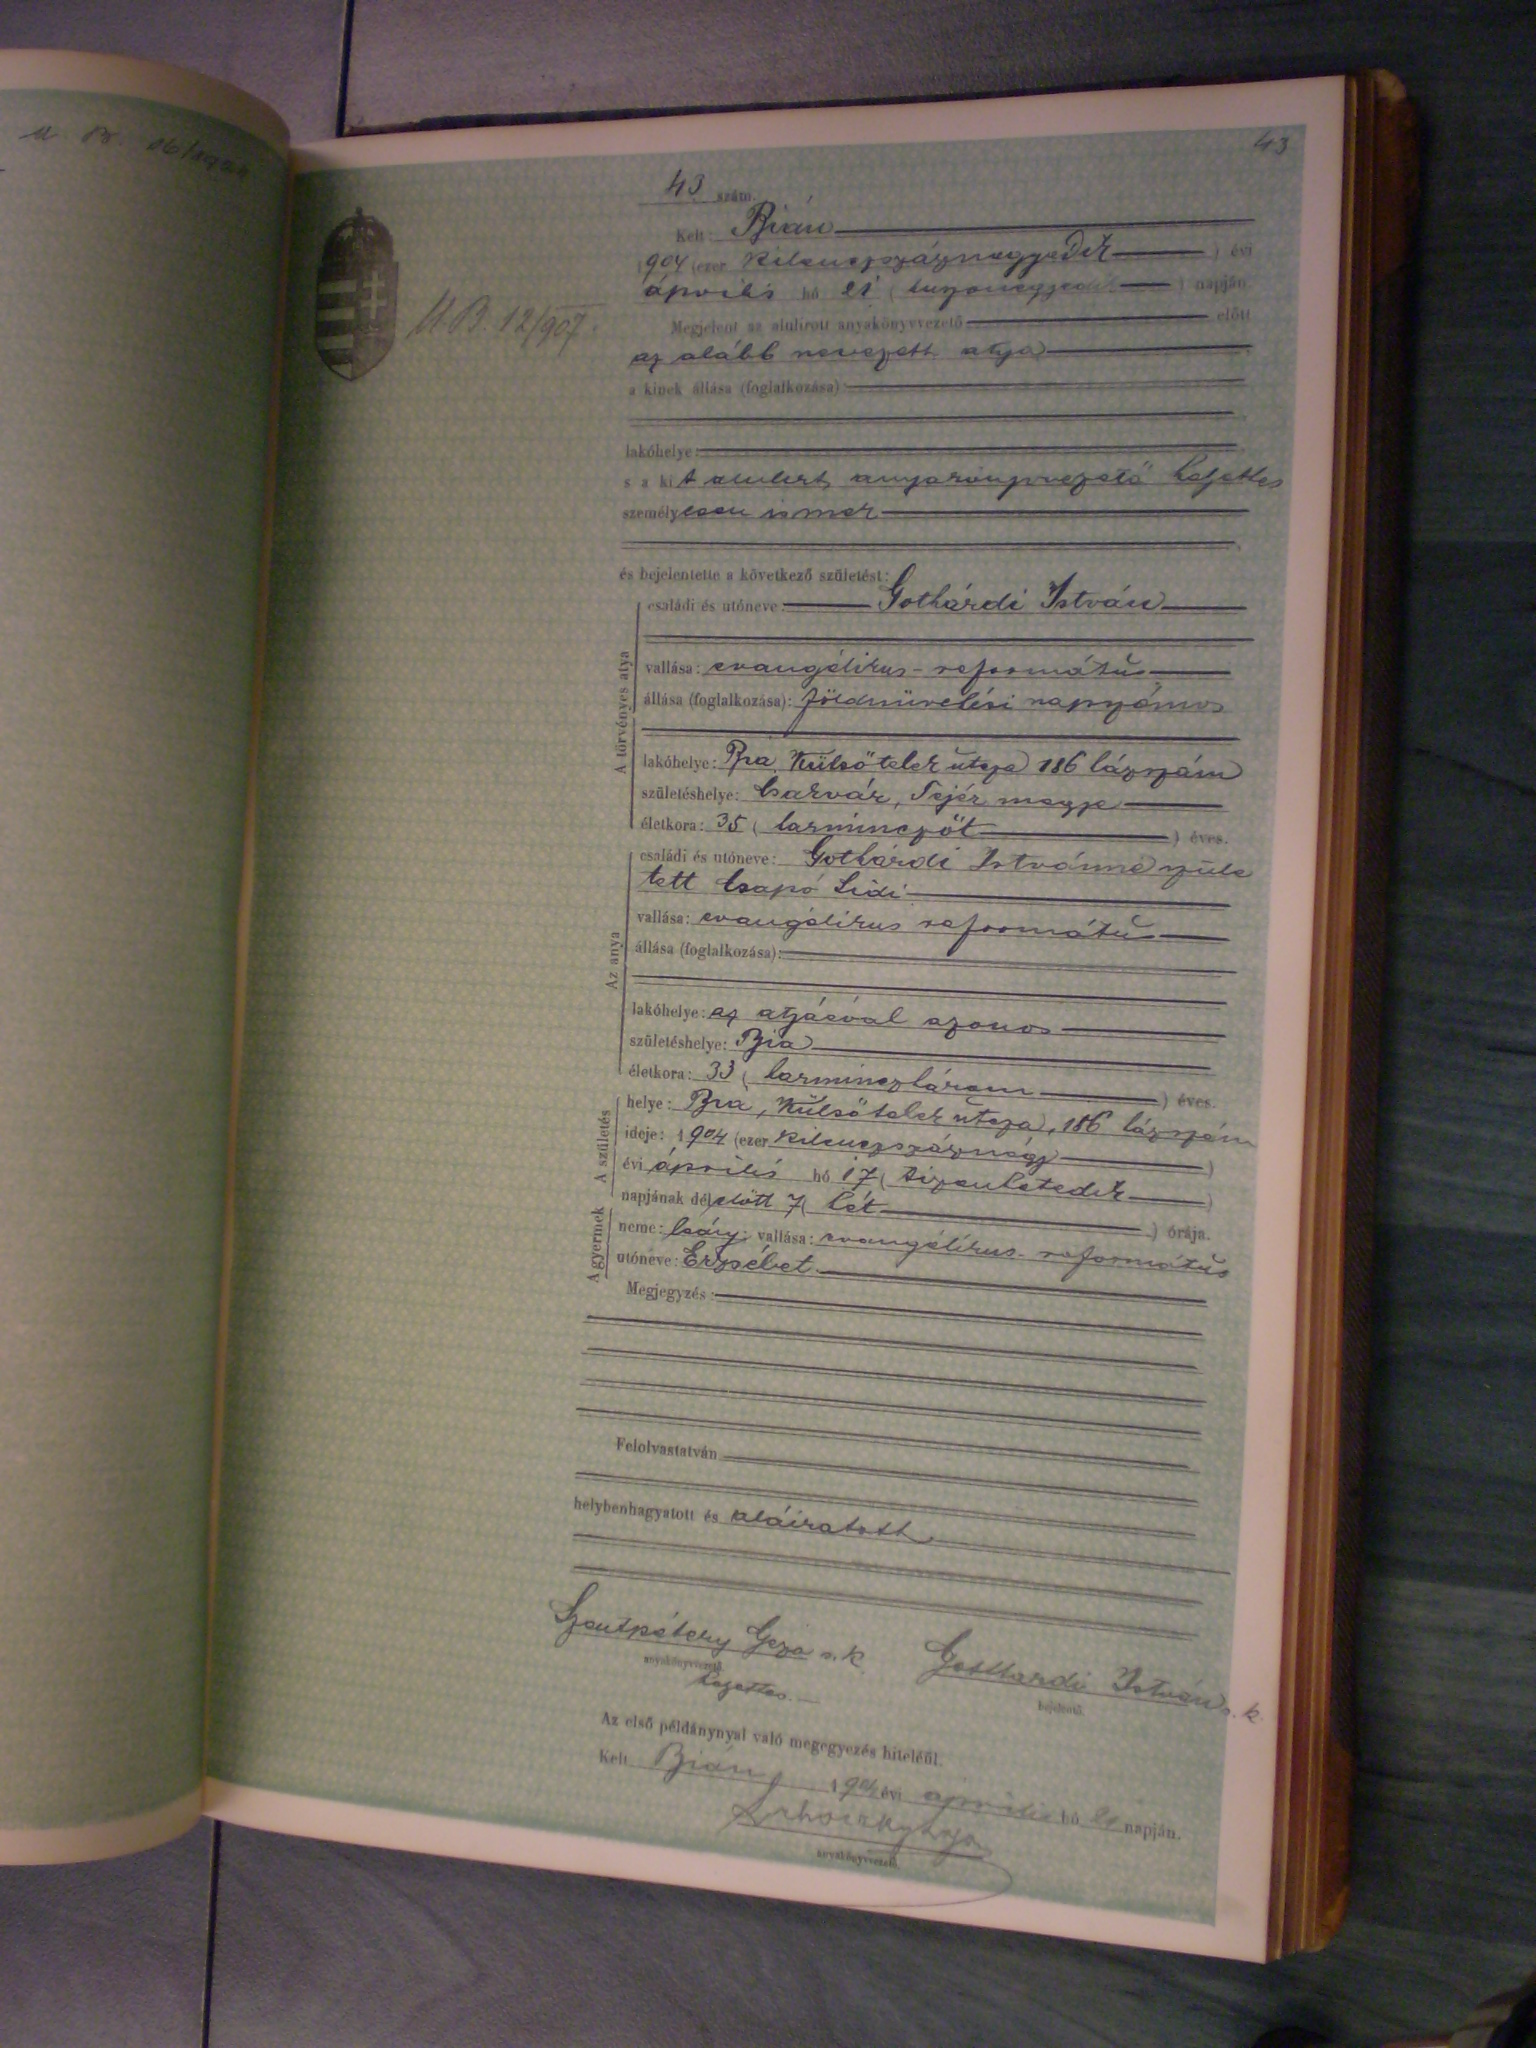 43
43 szám.
Kelt: Bián
1904 (ezer kilenczszáznegyedik ) évi
április hó 21 ( huszonegyedik ) napján
Megjelent az alulirott anyakönyvvezető előtt
az alább nevezett atya
a kinek állása (foglalkozása):
lakóhelye:
s a kit alulirt anyakönyvvezető helyettes
személyesen ismer
és bejelentette a következő születést:
A törvényes atya
családi és utóneve: Gothárdi István
vallása: evangélikus-református
állása (foglalkozása): földmüvelési napszámos
lakóhelye: Bia Külsőtelek utcza 186 házszám
születéshelye: Csákvár, Fejér megye
életkora: 35 ( harminczöt ) éves.
Az anya
családi és utóneve: Gothárdi Istvánné szüle
tett Csapó Lidi
vallása: evangélikus református
állása (foglalkozása):
lakóhelye: az atyáéval azonos
születéshelye: Bia
életkora: 33 ( harminczhárom ) éves.
A születés
helye: Bia, Külsőtelek utcza, 186 házszám
ideje: 1904 (ezer kilenczszáznégy )
évi április hó 17 ( tizenhetedik )
napjának délelőtt 7 ( hét ) órája.
A gyermek
neme: leány; vallása: evangélikus-református
utóneve: Erzsébet.
Megjegyzés:
Felolvastatván
helybenhagyatott és aláiratott
Szentpétery Géza s.k. Gothárdi István s.k.
anyakönyvvezető. bejelentő.
helyettes.
Az első példánynyal való megegyezés hiteléül.
Kelt Bián, 1904 évi április hó 21 napján.
anyakönyvvezető.
U.B. 12/907.